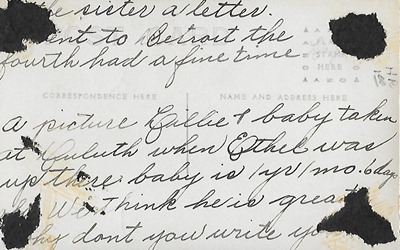 the sister a letter.
ent to Detroit the
fourth had a fine time
STAMP
HERE
CORRESPONDENCE HERE
NAME AND ADDRESS HERE
a picture Lillie & baby taken
at Duluth when Ethel was
up there. baby is 1 yr 1 mo. 6 days
We Think he is great
hy dont you write yo